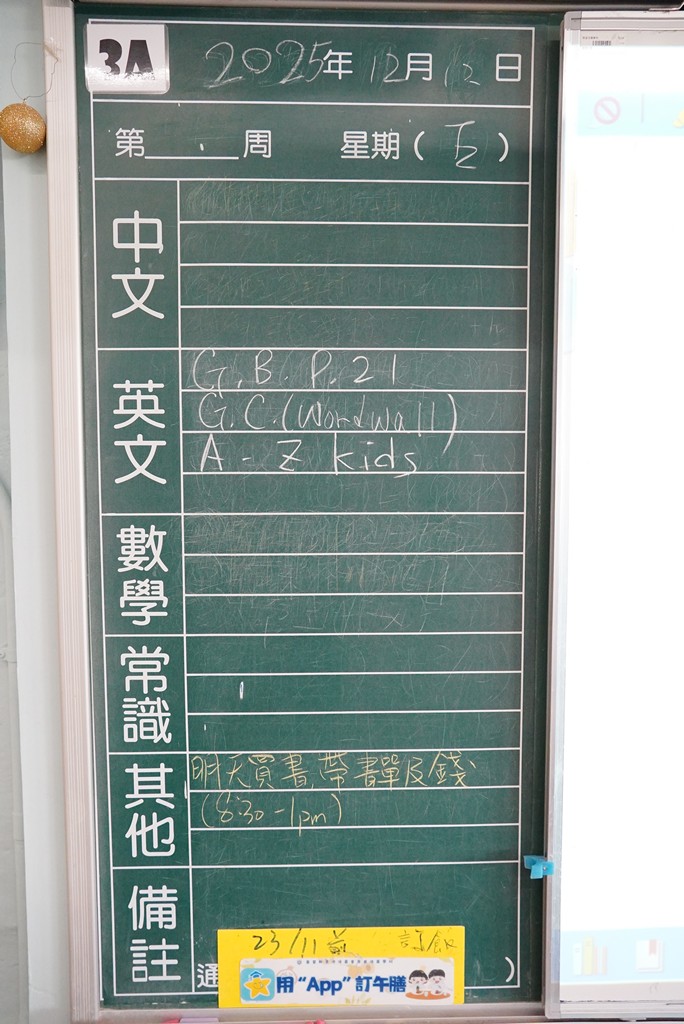 3A
2025年12月12日
第 周 星期(五)
中文
英文
G.B. P.21
G.C.(Wordwall)
A-Z kids
數學
常識
其他
明天買書,帶書單及錢
(8:30-1pm)
備註
通
)
23/11前 訂飯
用“App”訂午膳